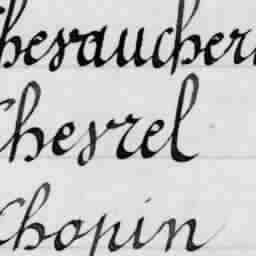 hevaucher
Chevrel
Chopin